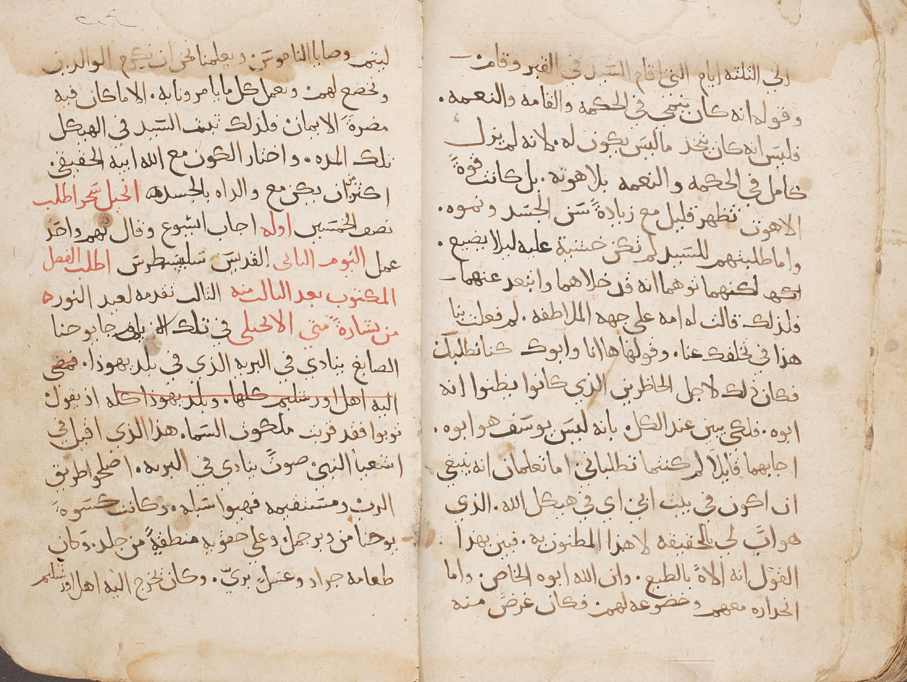 الى الثلثه ايام التى اقام السيد في القبر وقام
وقوله انه كان ينمى في الحكمه والقامه والنعمه.
فليس انه كان يتخذ ماليس يكون له. لانه لم يزل
كامل في الحكمه والنعمه بلاهوته. بل كانت قوة
اللاهوت تظهر قليل مع زيادة سن الجسد ونموه.
واما طلبتهم للسيد لم تكن خشية عليه ليلا يضيع.
لكنهما توهما انه قد خلاهما وابتعد عنهما
فلذلك قالت له امه على جهه الملاطفه. لم فعلت بنا
هذا في تخلفك عنا. وقولها هاانا وابوك كنا نطلبك
فكان ذلك لاجل الحاظرين الذي كانوا يظنوا انه
ابوه. فلكي يبين عند الكل. بانه ليس يوسف هو ابوه.
اجابهما قايلا لم كنتما تطلباني. اما تعلمان انه ينبغي
ان اكون في بيت ابي اي في هيكل الله. الذي
هو اب لي بالحقيقه لا هذا المظنون به. فبين بهذا
القول انه الاه بالطبع. وان الله ابوه الخاص. واما
انحداره معهم وخضوعه لهم. فكان غرض منه
ليتم وصايا الناموس. ويعلمنا نحن ان نكرم الوالدين
ونخضع لهم. ونعمل كل ما يامرونا به. الا ما كان فيه
مضرة الايمان ولذلك تخلف السيد في الهيكل
تلك المره. واختار الكون مع الله ابيه الحقيقي.
اكثر ان يكن مع والداه بالجسد انجيل سحر اطلب
نصف الخمسين اوله اجاب ايسوع وقال لهم واحد
عمل اليوم الثاني القديس سلبسطرس اطلب الفصل
المكتوب بعد الثالث منه الثالث تقدمه لعيد النور
من بشارة متي الانجيلي في تلك الايام جا يوحنا
الصابغ ينادي في البريه الذي في بلد يهوذا.
اليه اهل اورشليم كلها. وبلد يهوذا كله اذ يقول
توبوا فقد قربت ملكوت السما. هذا الذي اقيل في
اشعيا النبي صوت ينادي في البريه. اصلحوا طريق
الرب ومستقيمه فهبوا سبله. وكانت كسوة
يوحنا من وبر جمل وعلى حقويه منطقة من جلد. وكان
طعامه جراد وعسل بري. وكان يخرج اليه اهل اورشليم